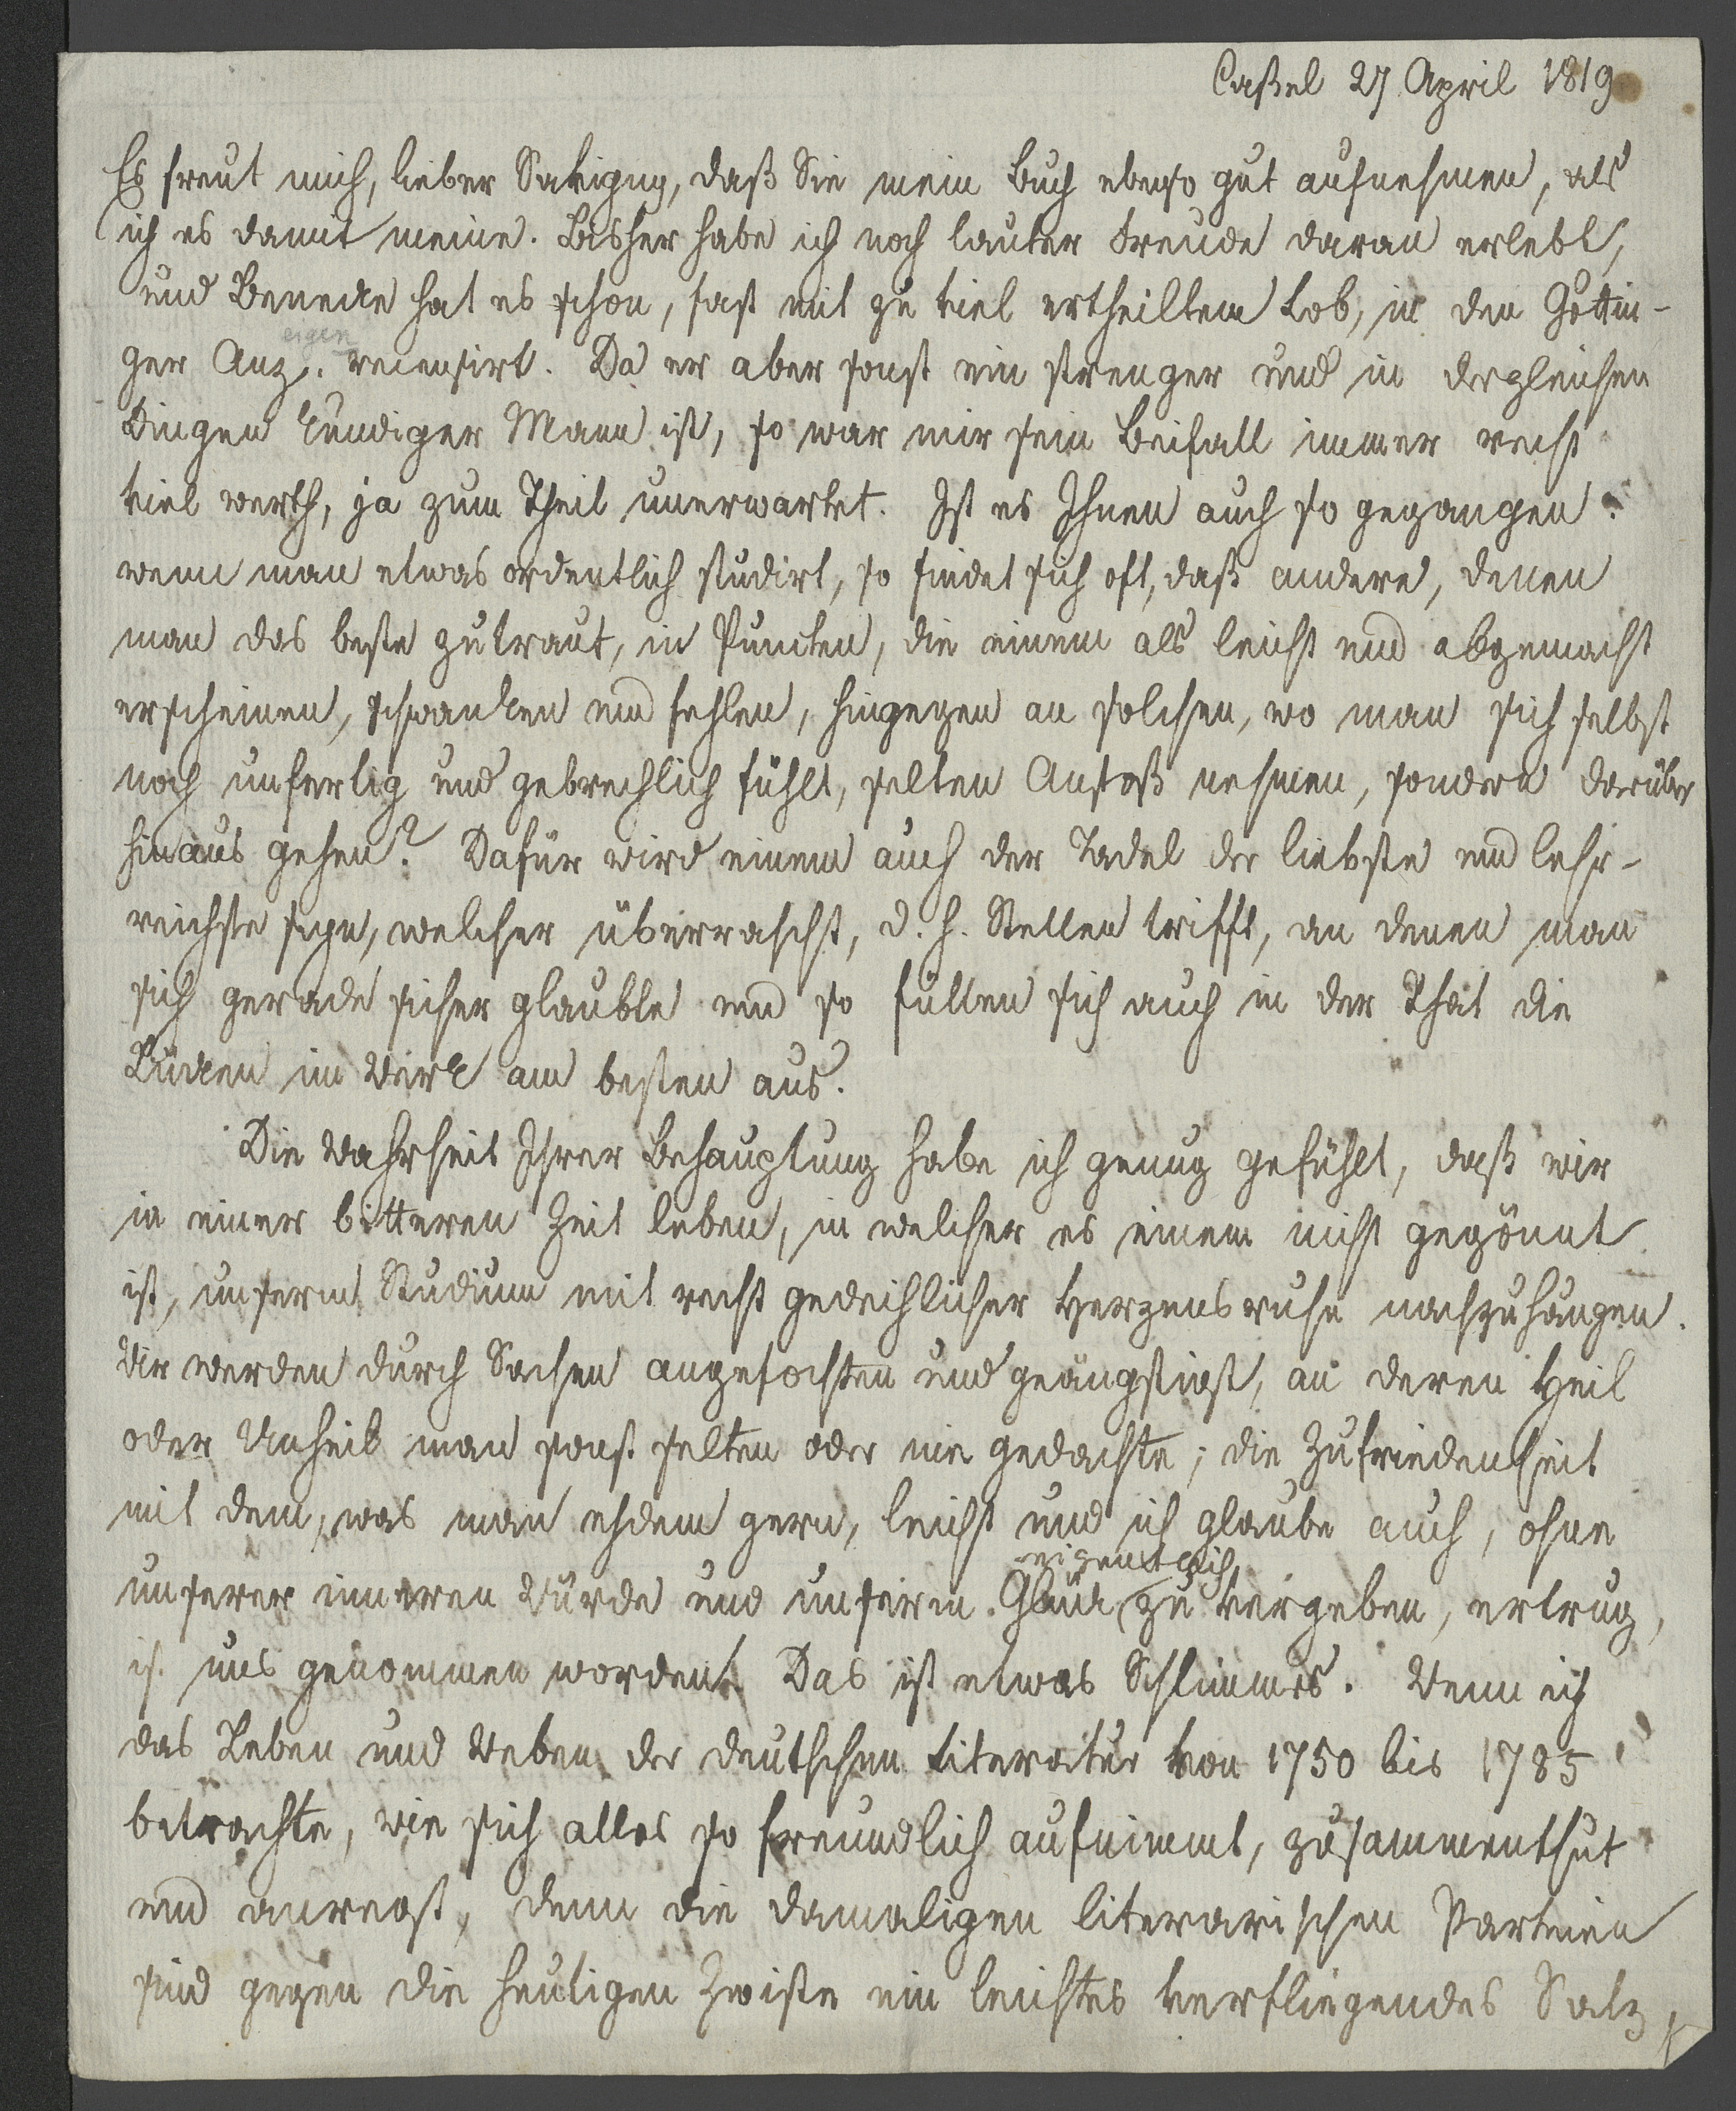 Caßel 27 April 1819
Es freut mich, lieber Savigny, daß Sie mein Buch ebenso gut aufnehmen, als
ich es damit meine. Bisher habe ich noch lauter Freude daran erlebt,
und Benecke hat es schon, fast mit zu viel ertheiltem Lob, in den Göttin-
eigen
ger Anz. recensirt. Da er aber sonst ein strenger und in dergleichen
Dingen kundiger Mann ist, so war mir sein Beifall immer recht
viel werth, ja zum Theil unerwartet. Ist es Ihnen auch so gegangen:
wenn man etwas ordentlich studirt, so findet sich oft, daß andere, denen
man das beste zutraut, in Puncten, die einem als leicht und abgemacht
erscheinen, schwanken und fehlen, hingegen an solchen, wo man sich selbst
noch unfertig und gebrechlich fühlt, selten Anstoß nehmen, sondern darüber
hinaus gehen? Dafür wird einem auch der Tadel der liebste und lehr-
reichste seyn, welcher überrascht, d. h. Stellen trifft, an denen man
sich gerade sicher glaubte und so füllen sich auch in der That die
Lücken im Werk am besten aus.
Die Wahrheit Ihrer Behauptung habe ich genug gefühlt, daß wir
in einer bitteren Zeit leben, in welcher es einem nicht gegönnt
ist, unserm Studium mit recht gedeihlicher Herzensruhe nachzuhängen.
Wir werden durch Sachen angefochten und geängstigt, an deren Heil
oder Unheil man sonst selten oder nie gedachte; die Zufriedenheit
mit dem, was man ehdem gern, leicht und ich glaube auch, ohne
eigentlich
unserer inneren Würde und unserm Glück zu vergeben, ertrug,
ist uns genommen worden. Das ist etwas Schlimmes. Wenn ich
das Leben und Weben der deutschen Literatur von 1750 bis 1785
betrachte, wie sich alles so freundlich aufnimmt, zusammenthut
und anregt, denn die damaligen literarischen Parteien
sind gegen die heutigen Zwiste ein leichtes verfliegendes Salz,